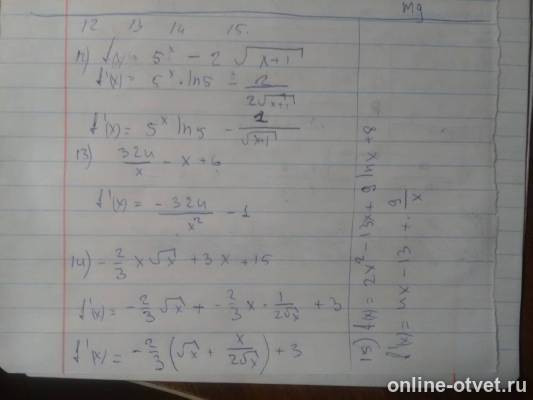 Mg
12 13 14 15.
11) f(x) = 5^x - 2 √(x+1)
f'(x) = 5^x · ln5 - 2/(2√(x+1))
f'(x) = 5^x ln5 - 1/√(x+1)
13) 324/x - x + 6
f'(x) = -324/x² - 1
14) -2/3 x √x + 3x + 15
f'(x) = -2/3 √x + -2/3 x · 1/(2√x) + 3
f'(x) = -2/3 (√x + x/(2√x)) + 3
15) f(x) = 2x² - 13x + 9 lnx + 8
f'(x) = 4x - 13 + 9/x
online-otvet.ru